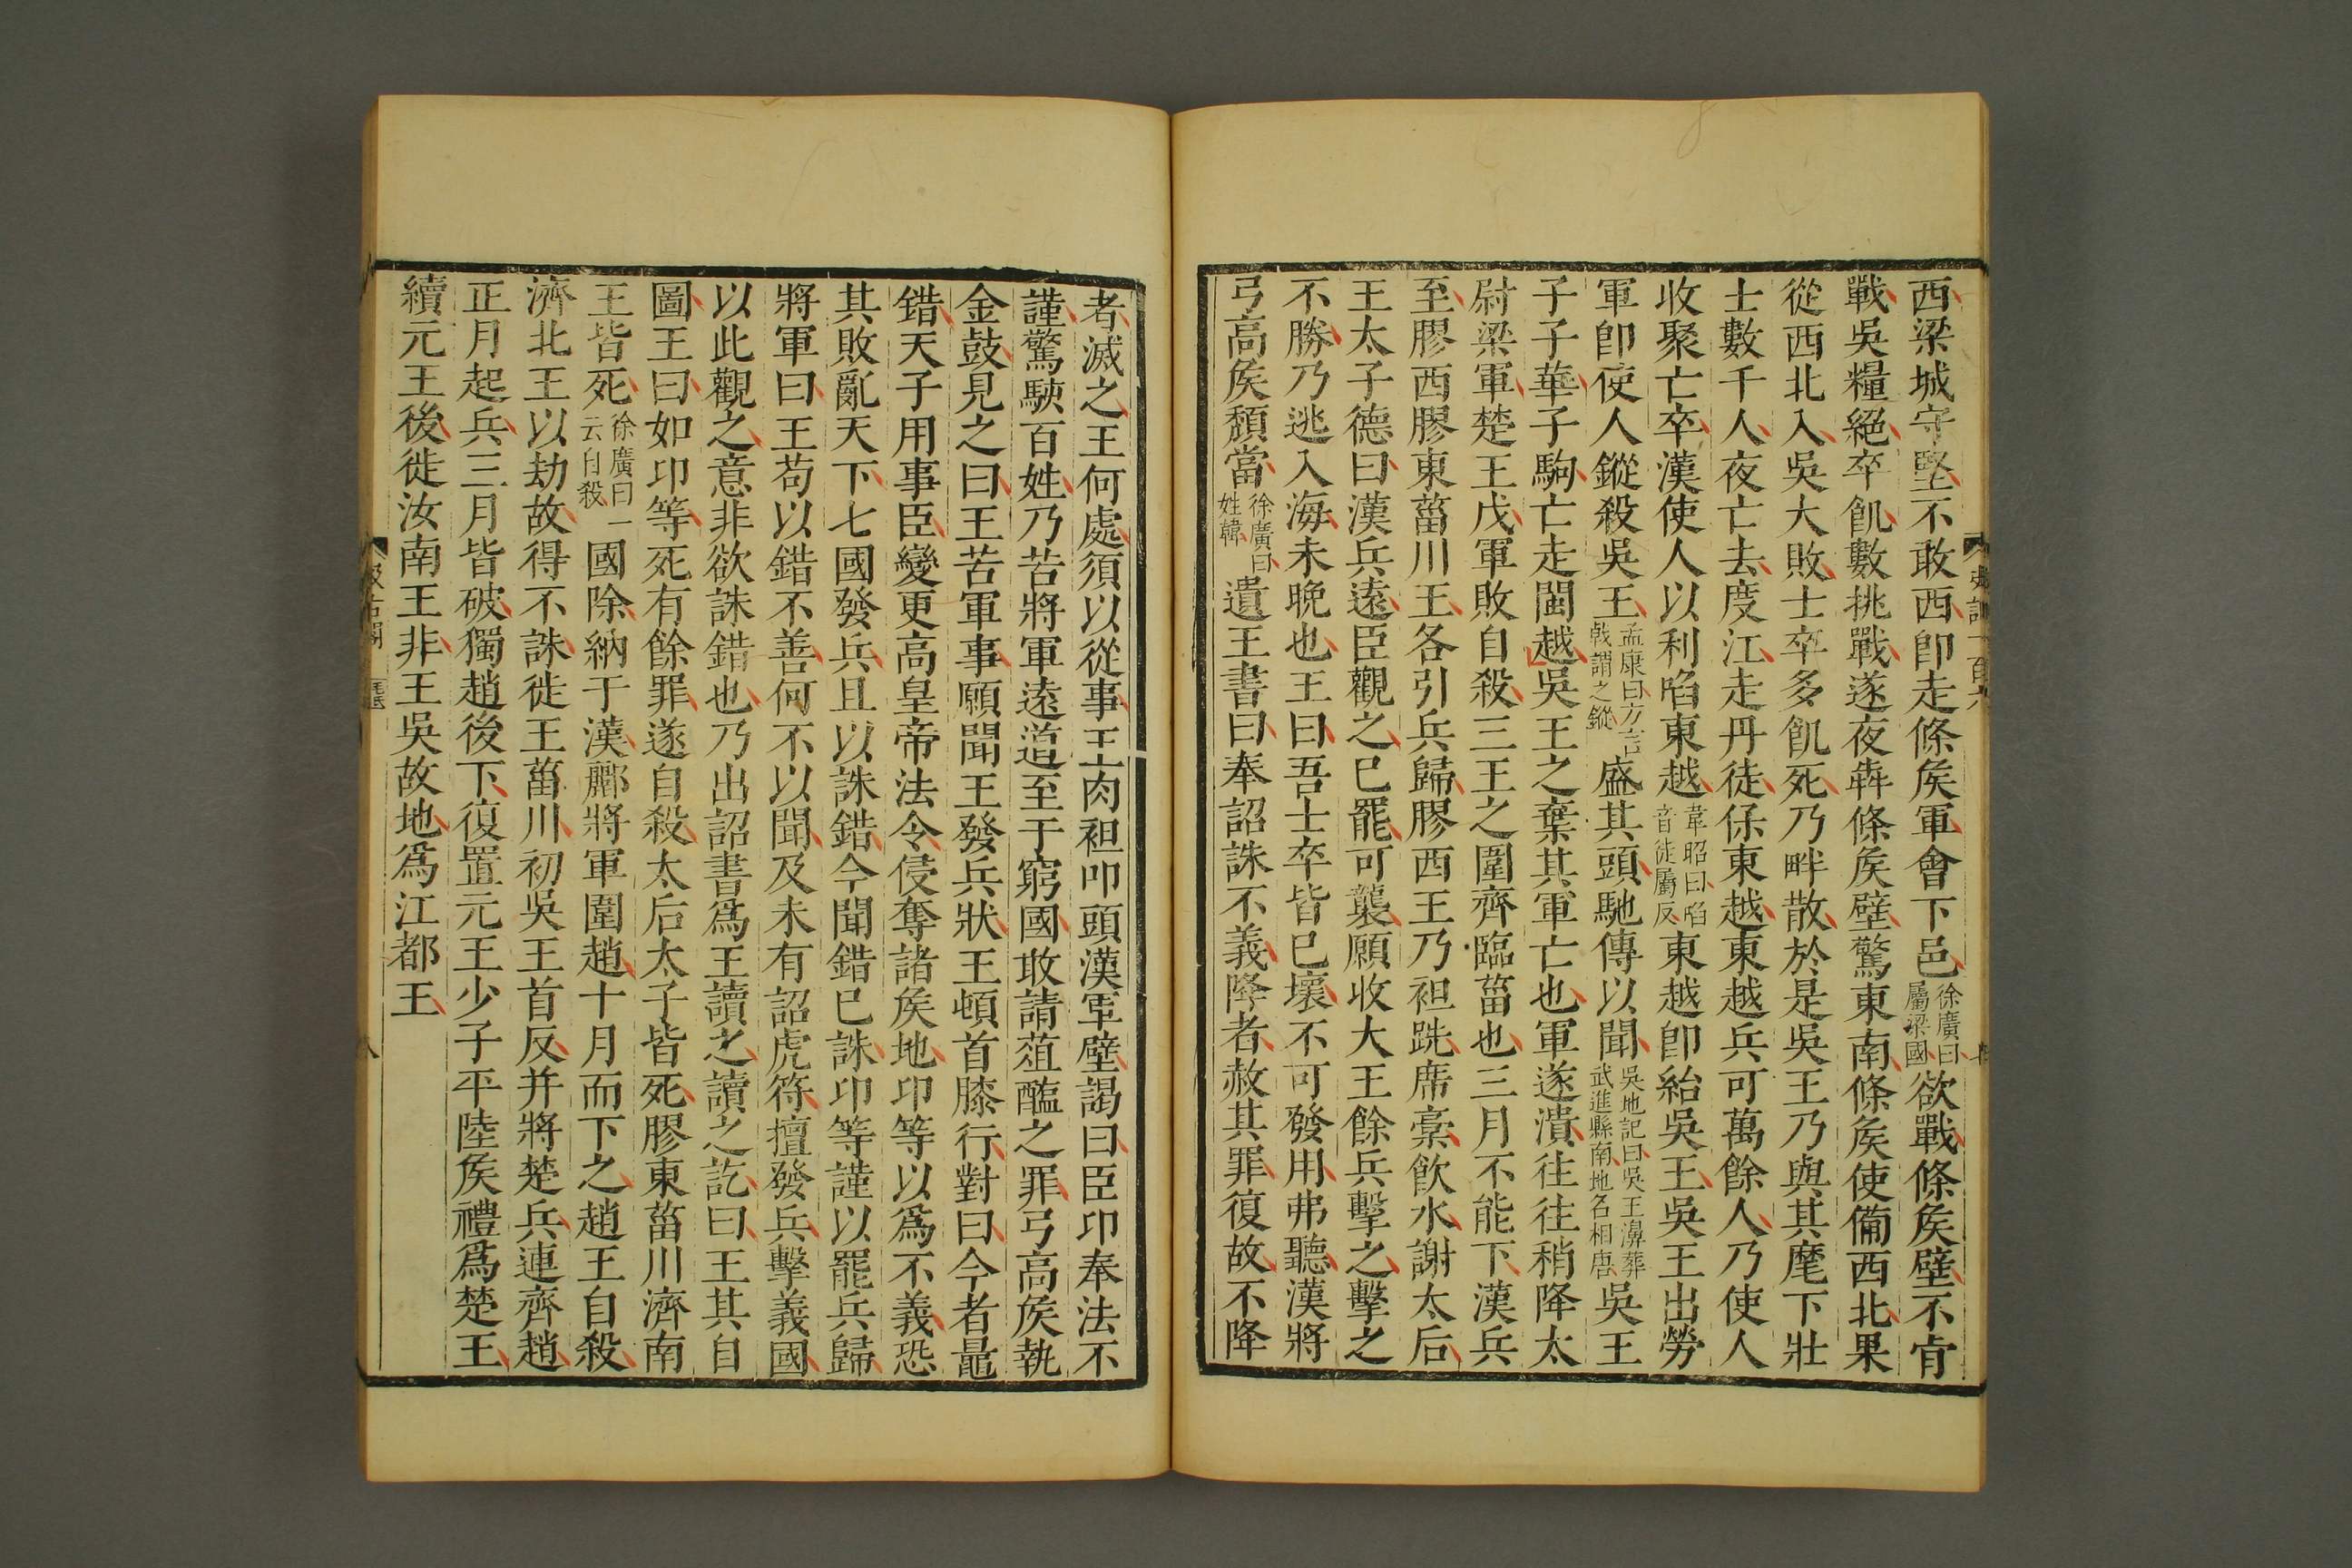 西梁城守堅不敢西卽走條矦軍會下邑徐廣曰屬梁國欲戰條矦壁不肯
戰吳糧絕卒飢數挑戰遂夜犇條矦壁驚東南條矦使僃西北果
從西北入吳大敗士卒多飢死乃畔散於是吳王乃與其麾下壯
士數千人夜亡去度江走丹徒保東越東越兵可萬餘人乃使人
收聚亡卒漢使人以利啗東越韋昭曰啗音徒屬反東越卽紿吳王吳王出勞
軍卽使人鏦殺吳王孟康曰方言戟謂之鏦盛其頭馳傳以聞吳地記曰吳王濞葬武進縣南地名相唐吳王
子子華子駒亡走閩越吳王之棄其軍亡也軍遂潰往往稍降太
尉梁軍楚王戊軍敗自殺三王之圍齊臨菑也三月不能下漢兵
至膠西膠東菑川王各引兵歸膠西王乃袒跣席槀飮水謝太后
王太子德曰漢兵遠臣觀之已罷可襲願收大王餘兵擊之擊之
不勝乃逃入海未晚也王曰吾士卒皆已壞不可發用弗聽漢將
弓高矦頹當徐廣曰姓韓遺王書曰奉詔誅不義降者赦其罪復故不降
者滅之王何處須以從事王肉袒叩頭漢軍壁謁曰臣卬奉法不
謹驚駭百姓乃苦將軍遠道至于窮國敢請葅醢之罪弓高矦執
金鼓見之曰王苦軍事願聞王發兵狀王頓首膝行對曰今者鼂
錯天子用事臣變更高皇帝法令侵奪諸矦地卬等以爲不義恐
其敗亂天下七國發兵且以誅錯今聞錯已誅卬等謹以罷兵歸
將軍曰王苟以錯不善何不以聞及未有詔虎符擅發兵擊義國
以此觀之意非欲誅錯也乃出詔書爲王讀之讀之訖曰王其自
圖王曰如卬等死有餘罪遂自殺太后太子皆死膠東菑川濟南
王皆死徐廣曰一云自殺國除納于漢酈將軍圍趙十月而下之趙王自殺
濟北王以劫故得不誅徙王菑川初吳王首反并將楚兵連齊趙
正月起兵三月皆破獨趙後下復置元王少子平陸矦禮爲楚王
續元王後徙汝南王非王吳故地爲江都王